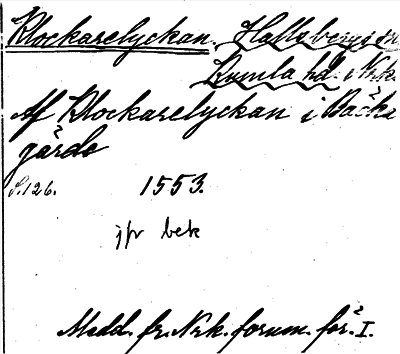 Klockarelyckan. Hallsbergs sn.
Kumla hd. i Nrk.
Af Klockarelyckan i Bäcka
gärde
S. 126. 1553.
jfr bek
Medd. fr. Nrk. fornm. för. I.